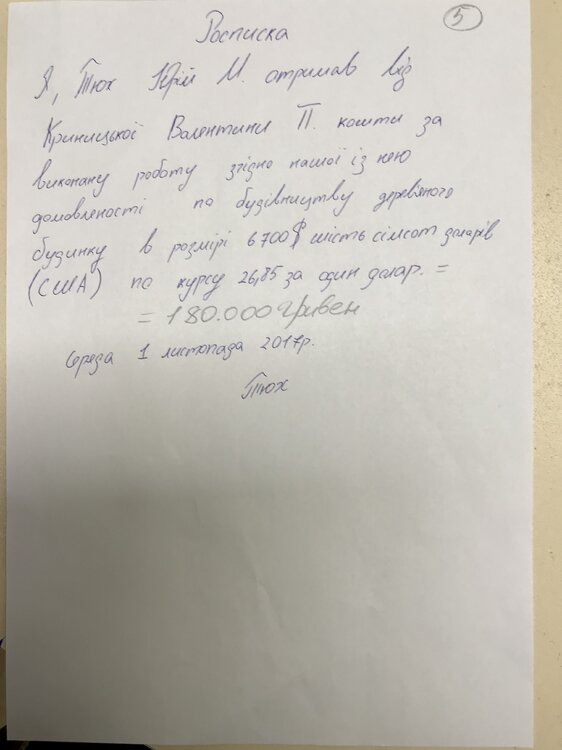 5
Росписка
Я, Тюх Юрій М. отримав від
Криницької Валентини П. кошти за
виконану роботу згідно нашої із нею
домовленості по будівництву деревяного
будинку в розмірі 6700$ шість сімсот доларів
(США) по курсу 26,85 за один долар. =
= 180.000 гривен
Середа 1 листопада 2017р.
Тюх